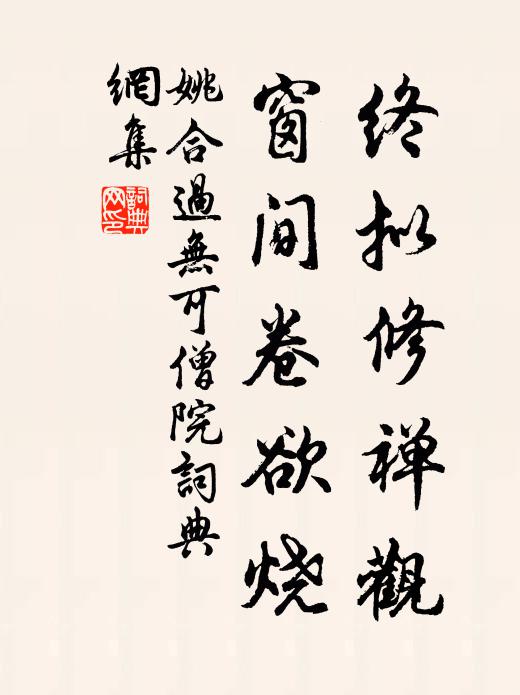 终拟修禅觀
窗间卷欲烧
姚合過無可僧院詞典
網集
詞典
网印